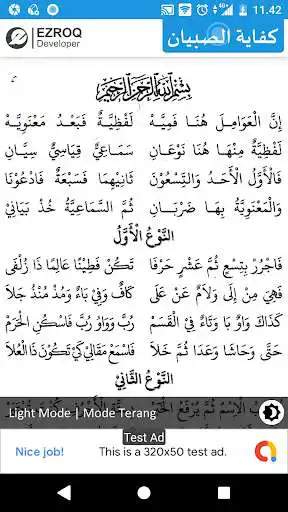 11.42
EZROQ
Developer
كفاية الصبيان
بِسْمِ اللهِ الرَّحْمَنِ الرَّحِيْمِ
إِنَّ الْعَوَامِلَ هُنَا قَمِيَّهْ لَفْظِيَّةٌ فَبَعْدُ مَعْنَوِيَّهْ
لَفْظِيَّةٌ مِنْهَا هُنَا نَوْعَانِ سَمَاعِيٌّ قِيَاسِيٌّ سِيَّانِ
فَالْأَوَّلُ الْأَحَدُ وَالتِّسْعُوْنَ ثَانِيْهِمَا فَسَبْعَةٌ فَادْعُوْنَا
وَالْمَعْنَوِيَّةُ بِهَا ضَرْبَانِ ثُمَّ السَّمَاعِيَّةُ خُذْ بَيَانِيْ
النَّوْعُ الْأَوَّلُ
فَاجْرُرْ بِتِسْعٍ ثُمَّ عَشْرٍ حَرْفَا تَكُنْ فَطِيْنًا عَالِمًا ذَا زُلْفَى
فَهِيَ مِنْ إِلَى وَلَامٌ عَنْ عَلَى كَافٌ وَفِيْ بَاءٌ وَمُذْ مُنْذُ جَلَا
كَذَاكَ وَاوٌ بَا وَتَاءٌ فِي الْقَسَمْ رُبَّ وَوَاوُ رُبَّ فَاسْكُنِ الْحَرَمْ
حَتَّى وَحَاشَا وَعَدَا ثُمَّ خَلَا فَاسْمَعْ مَقَالِيْ كَيْ تَكُوْنَ ذَا الْعُلَا
النَّوْعُ الثَّانِيْ
الْاِسْمُ ثُمَّ يُرْفَعُ
Light Mode | Mode Terang
Test Ad
Nice job! This is a 320x50 test ad.